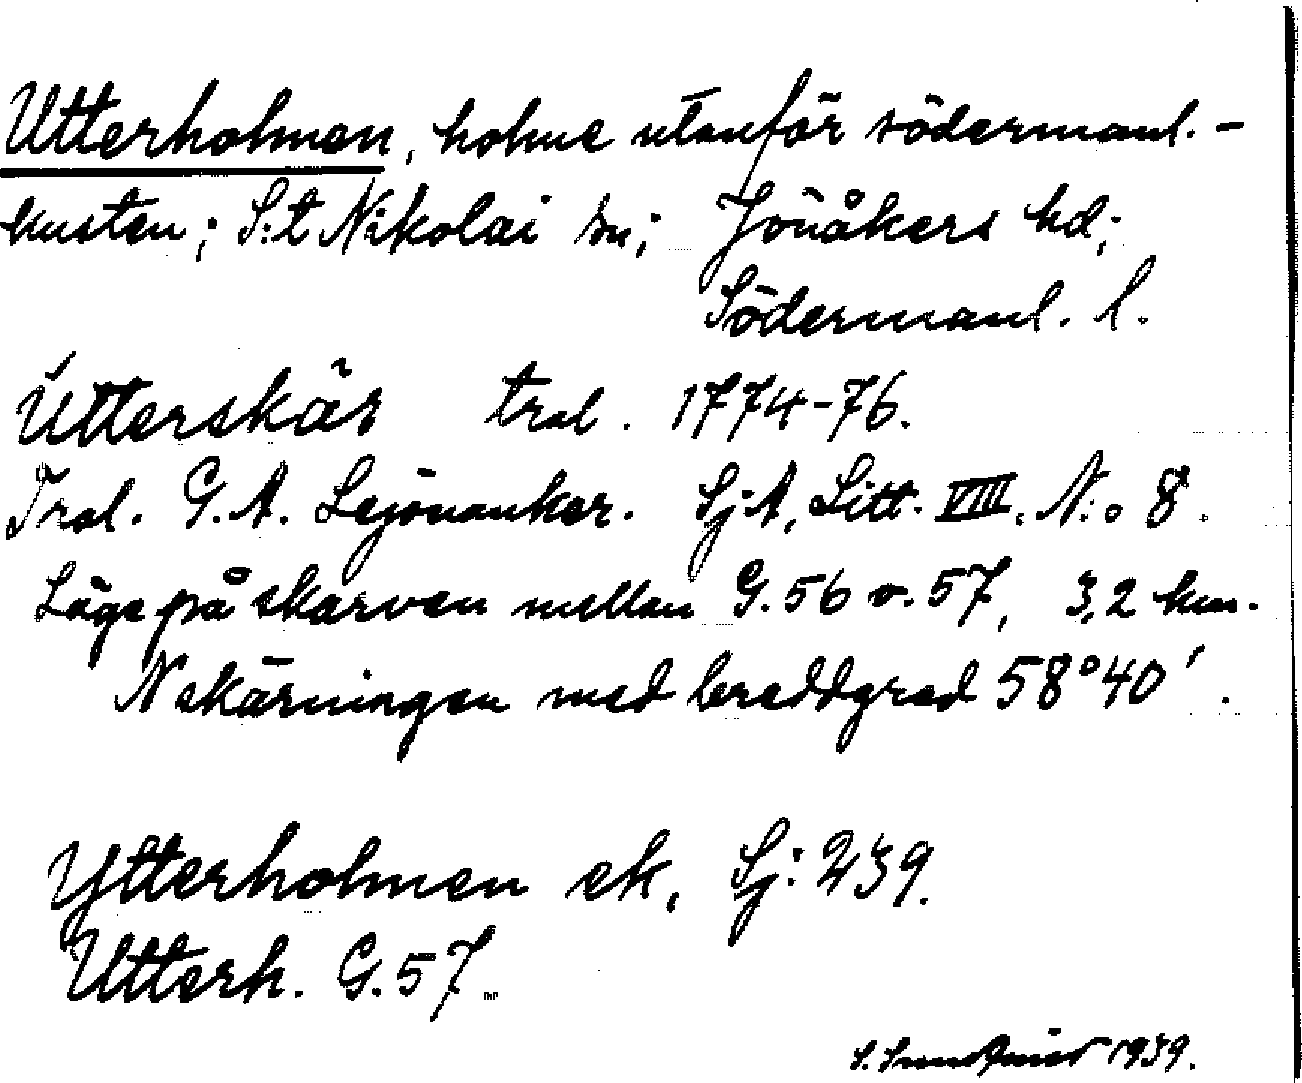 Utterholmen, holme utanför södermanl.-
kusten; S:t Nikolai sn; Jönåkers hd;
Södermanl. l.
Utterskär tral. 1774-76.
Tral. G.A. Lejonanker. Sj.A. Litt. VIII. N:o 8.
Läge på skarven mellan G.56 o. 57, 3,2 km.
N skärningen med breddgrad 58°40'.
Ytterholmen ek, Sj: 239.
Utterh. G.57.
S. 1939.